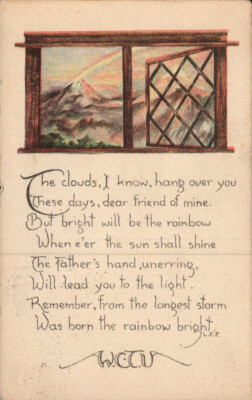 The clouds, I know, hang over you
These days, dear friend of mine.
But bright will be the rainbow
When e'er the sun shall shine
The Father's hand, unerring,
Will lead you to the light.
Remember, from the longest storm
Was born the rainbow bright
W.C.T.U